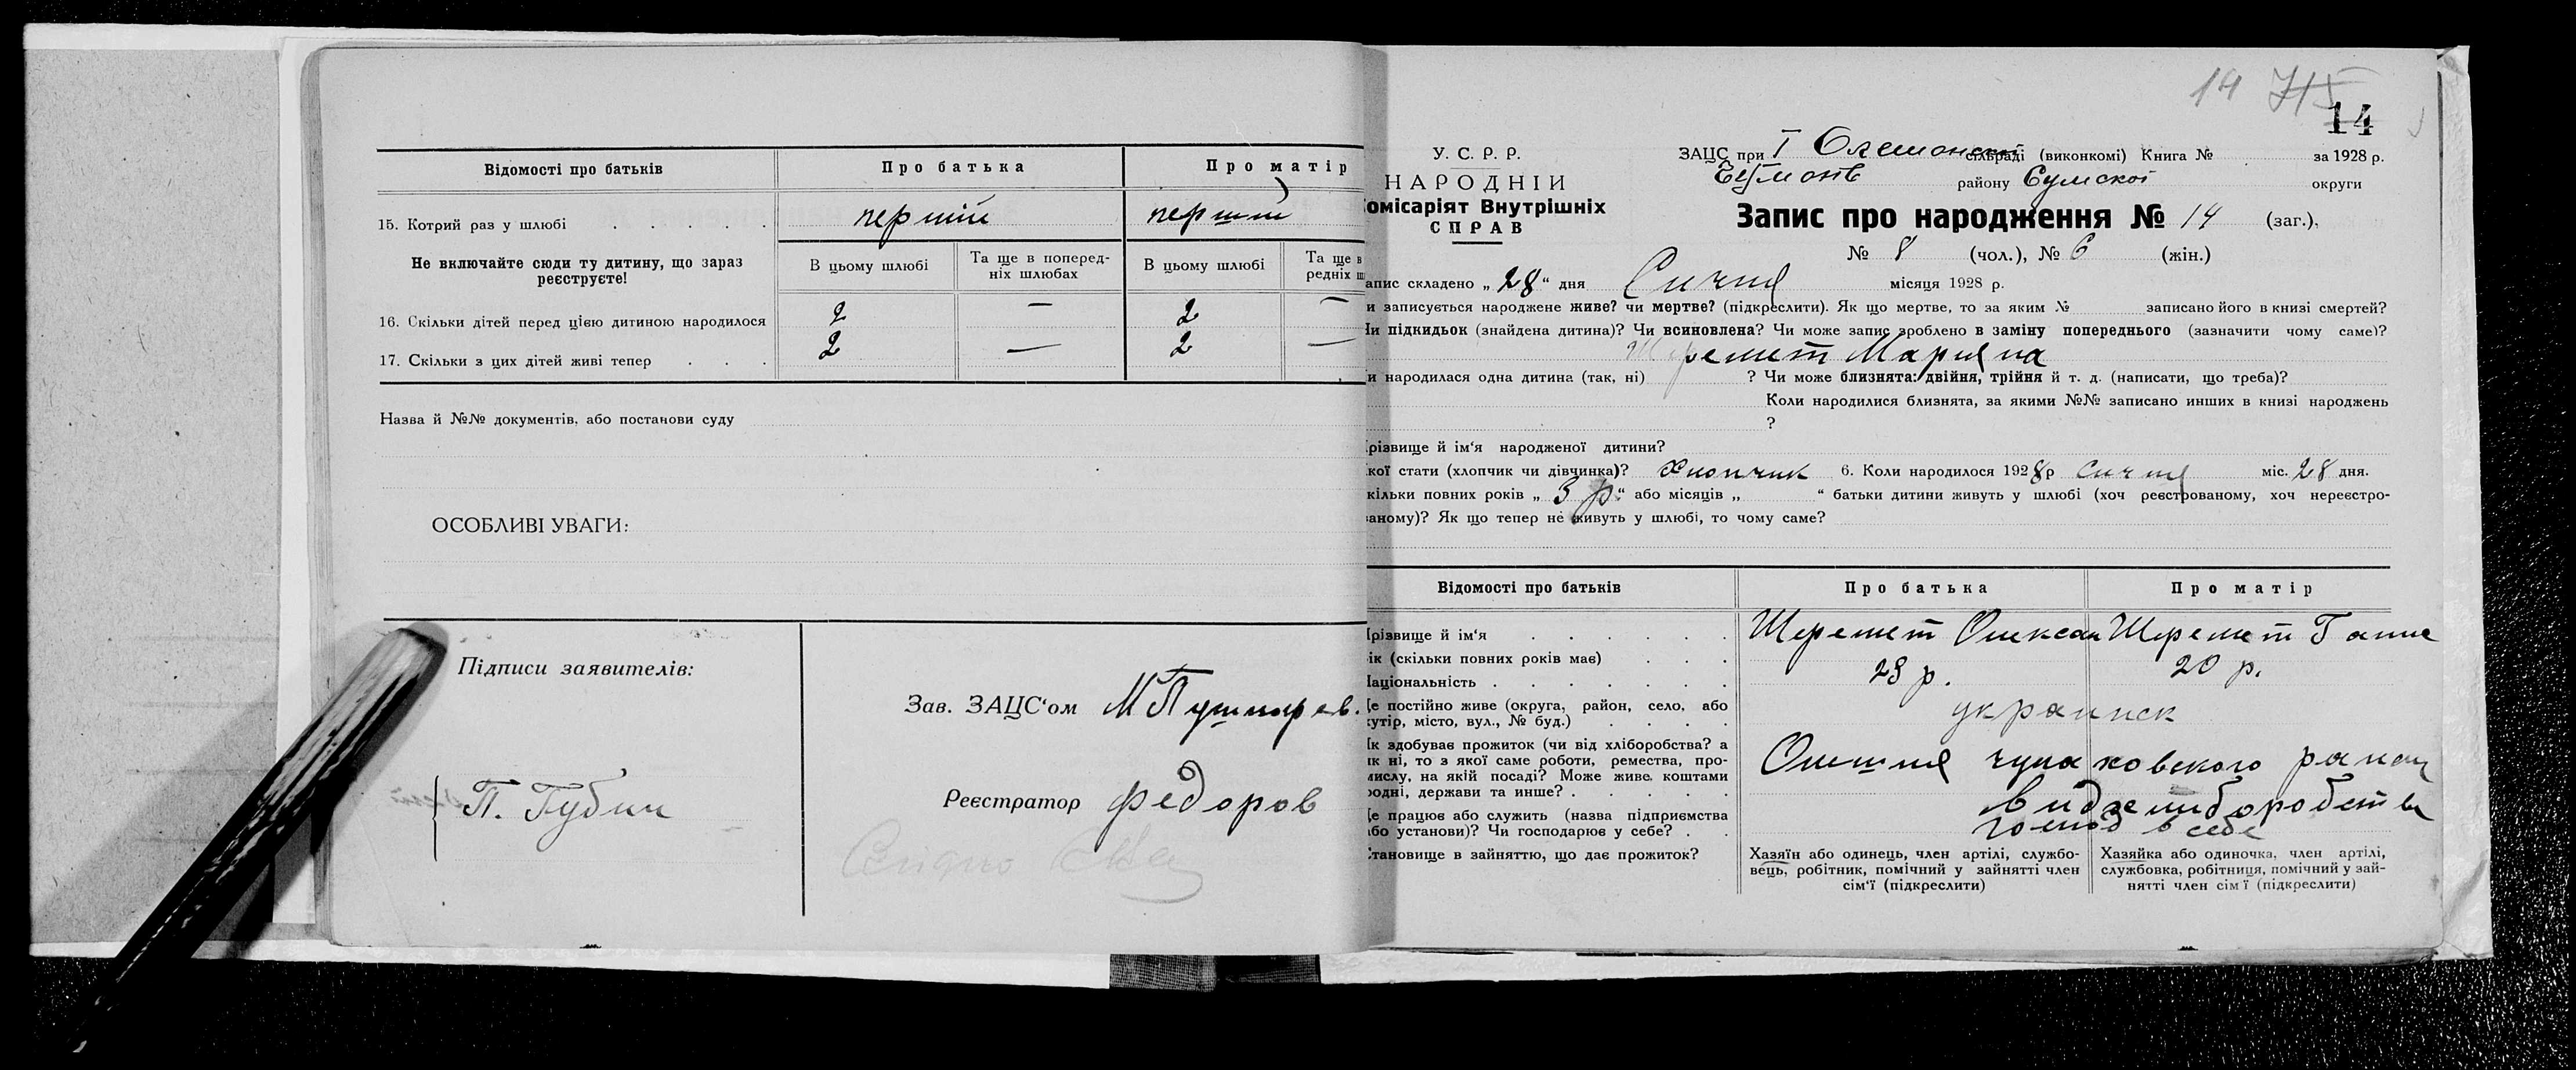 Відомості про батьків
Про батька
Про матір
15. Котрий раз у шлюбі
перший
перший
Не включайте сюди ту дитину, що зараз реєструєте!
В цьому шлюбі
Та ще в поперед-
ніх шлюбах
В цьому шлюбі
Та ще в
редніх ш
16. Скільки дітей перед цією дитиною народилося
2 — 2 —
17. Скільки з цих дітей живі тепер
2 — 2 —
Назва й №№ документів, або постанови суду
ОСОБЛИВІ УВАГИ:
Підписи заявителів:
П. Губин
Зав. ЗАЦС‘ом
Реєстратор Федоров
14
14
У. С. Р. Р.
НАРОДНІЙ
омісаріят Внутрішніх
СПРАВ
ЗАЦС при I сільраді (виконкомі) Книга № за 1928 р.
району Сумской округи
Запис про народження № 14 (заг.),
№ 8 (чол.), № 6 (жін.)
апис складено „28“ дня Січня місяця 1928 р.
и записується народжене живе? чи мертве? (підкреслити). Як що мертве, то за яким № записано його в книзі смертей?
Чи підкидьок (знайдена дитина)? Чи всиновлена? Чи може запис зроблено в заміну попереднього (зазначити чому саме)?
Шеремет
и народилася одна дитина (так, ні) ? Чи може близнята: двійня, трійня й т. д. (написати, що треба)?
Коли народилися близнята, за якими №№ записано инших в книзі народжень
?
різвище й ім‘я народженої дитини?
кої стати (хлопчик чи дівчинка)? Хлопчик 6. Коли народилося 1928 р Січня міс. 28 дня.
кільки повних років „3 р.“ або місяців „ “ батьки дитини живуть у шлюбі (хоч реєстрованому, хоч нереєстро-
ваному)? Як що тепер не живуть у шлюбі, то чому саме?
Відомості про батьків
Про батька
Про матір
різвище й ім‘я
Шеремет Олексан
Шеремет Ганна
ік (скільки повних років має)
28 р.
20 р.
Національність
украинск
е постійно живе (округа, район, село, або
хутір, місто, вул., № буд.)
Олешня
к здобуває прожиток (чи від хліборобства? а
як ні, то з якої саме роботи, ремества, про-
мислу, на якій посаді? Може живе коштами
родні, держави та инше?
е працює або служить (назва підприємства
або установи)? Чи господарює у себе?
в себе
Становище в зайняттю, що дає прожиток?
Хазяїн або одинець, член артілі, службо-
вець, робітник, помічний у зайнятті член
сім‘ї (підкреслити)
Хазяйка або одиночка, член артілі,
службовка, робітниця, помічний у зай-
нятті член сім‘ї (підкреслити)